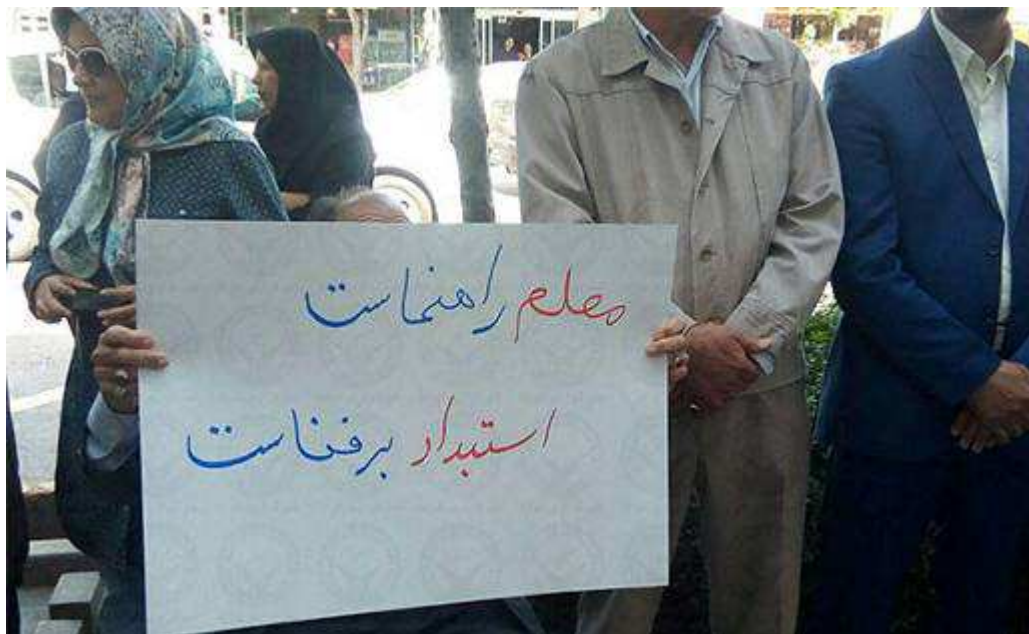 معلم راهنماست
استبداد برفناست